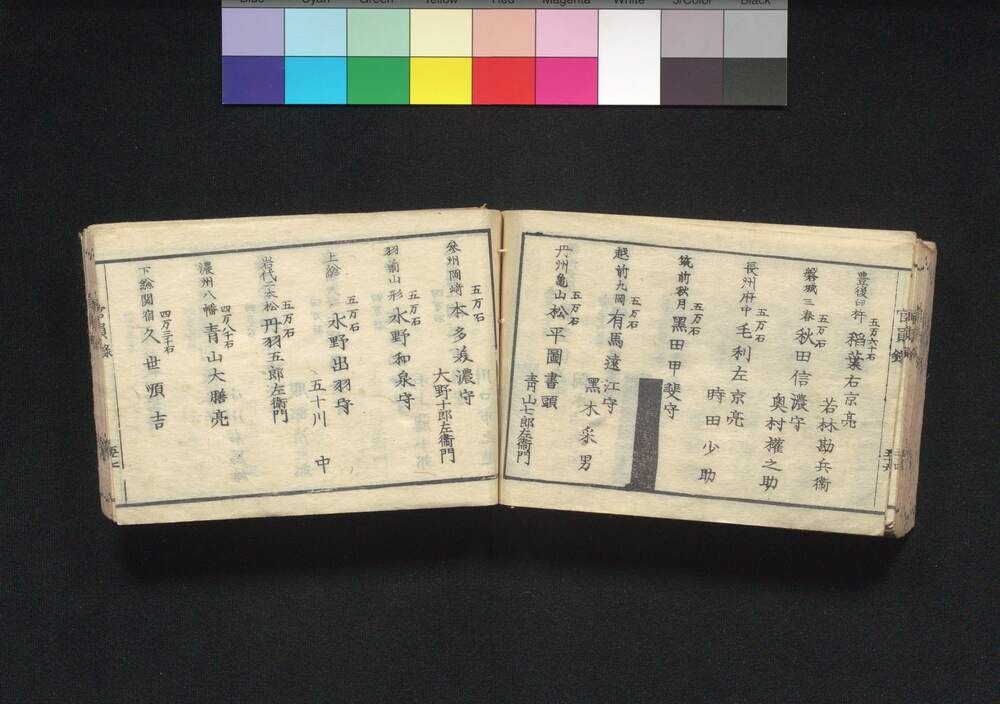 Blue Cyan Green Yellow Red Magenta White 3/Color Black
官員録
豊後臼杵 五万六十石 稲葉右京亮
若林勘兵衞
磐城三春 五万石 秋田信濃守
奥村權之助
長州府中 五万石 毛利左京亮
時田少助
筑前秋月 五万石 黑田甲斐守
越前丸岡 五万石 有馬遠江守
黑木采男
丹州亀山 五万石 松平圖書頭
青山七郎左衞門
参州岡崎 五万石 本多美濃守
大野十郎左衞門
羽前山形 五万石 水野和泉守
上総 五万石 水野出羽守
五十川 中
岩代二本松 五万石 丹羽五郎左衞門
濃州八幡 四万八千石 青山大膳亮
下総関宿 四万三千石 久世順吉
官員録